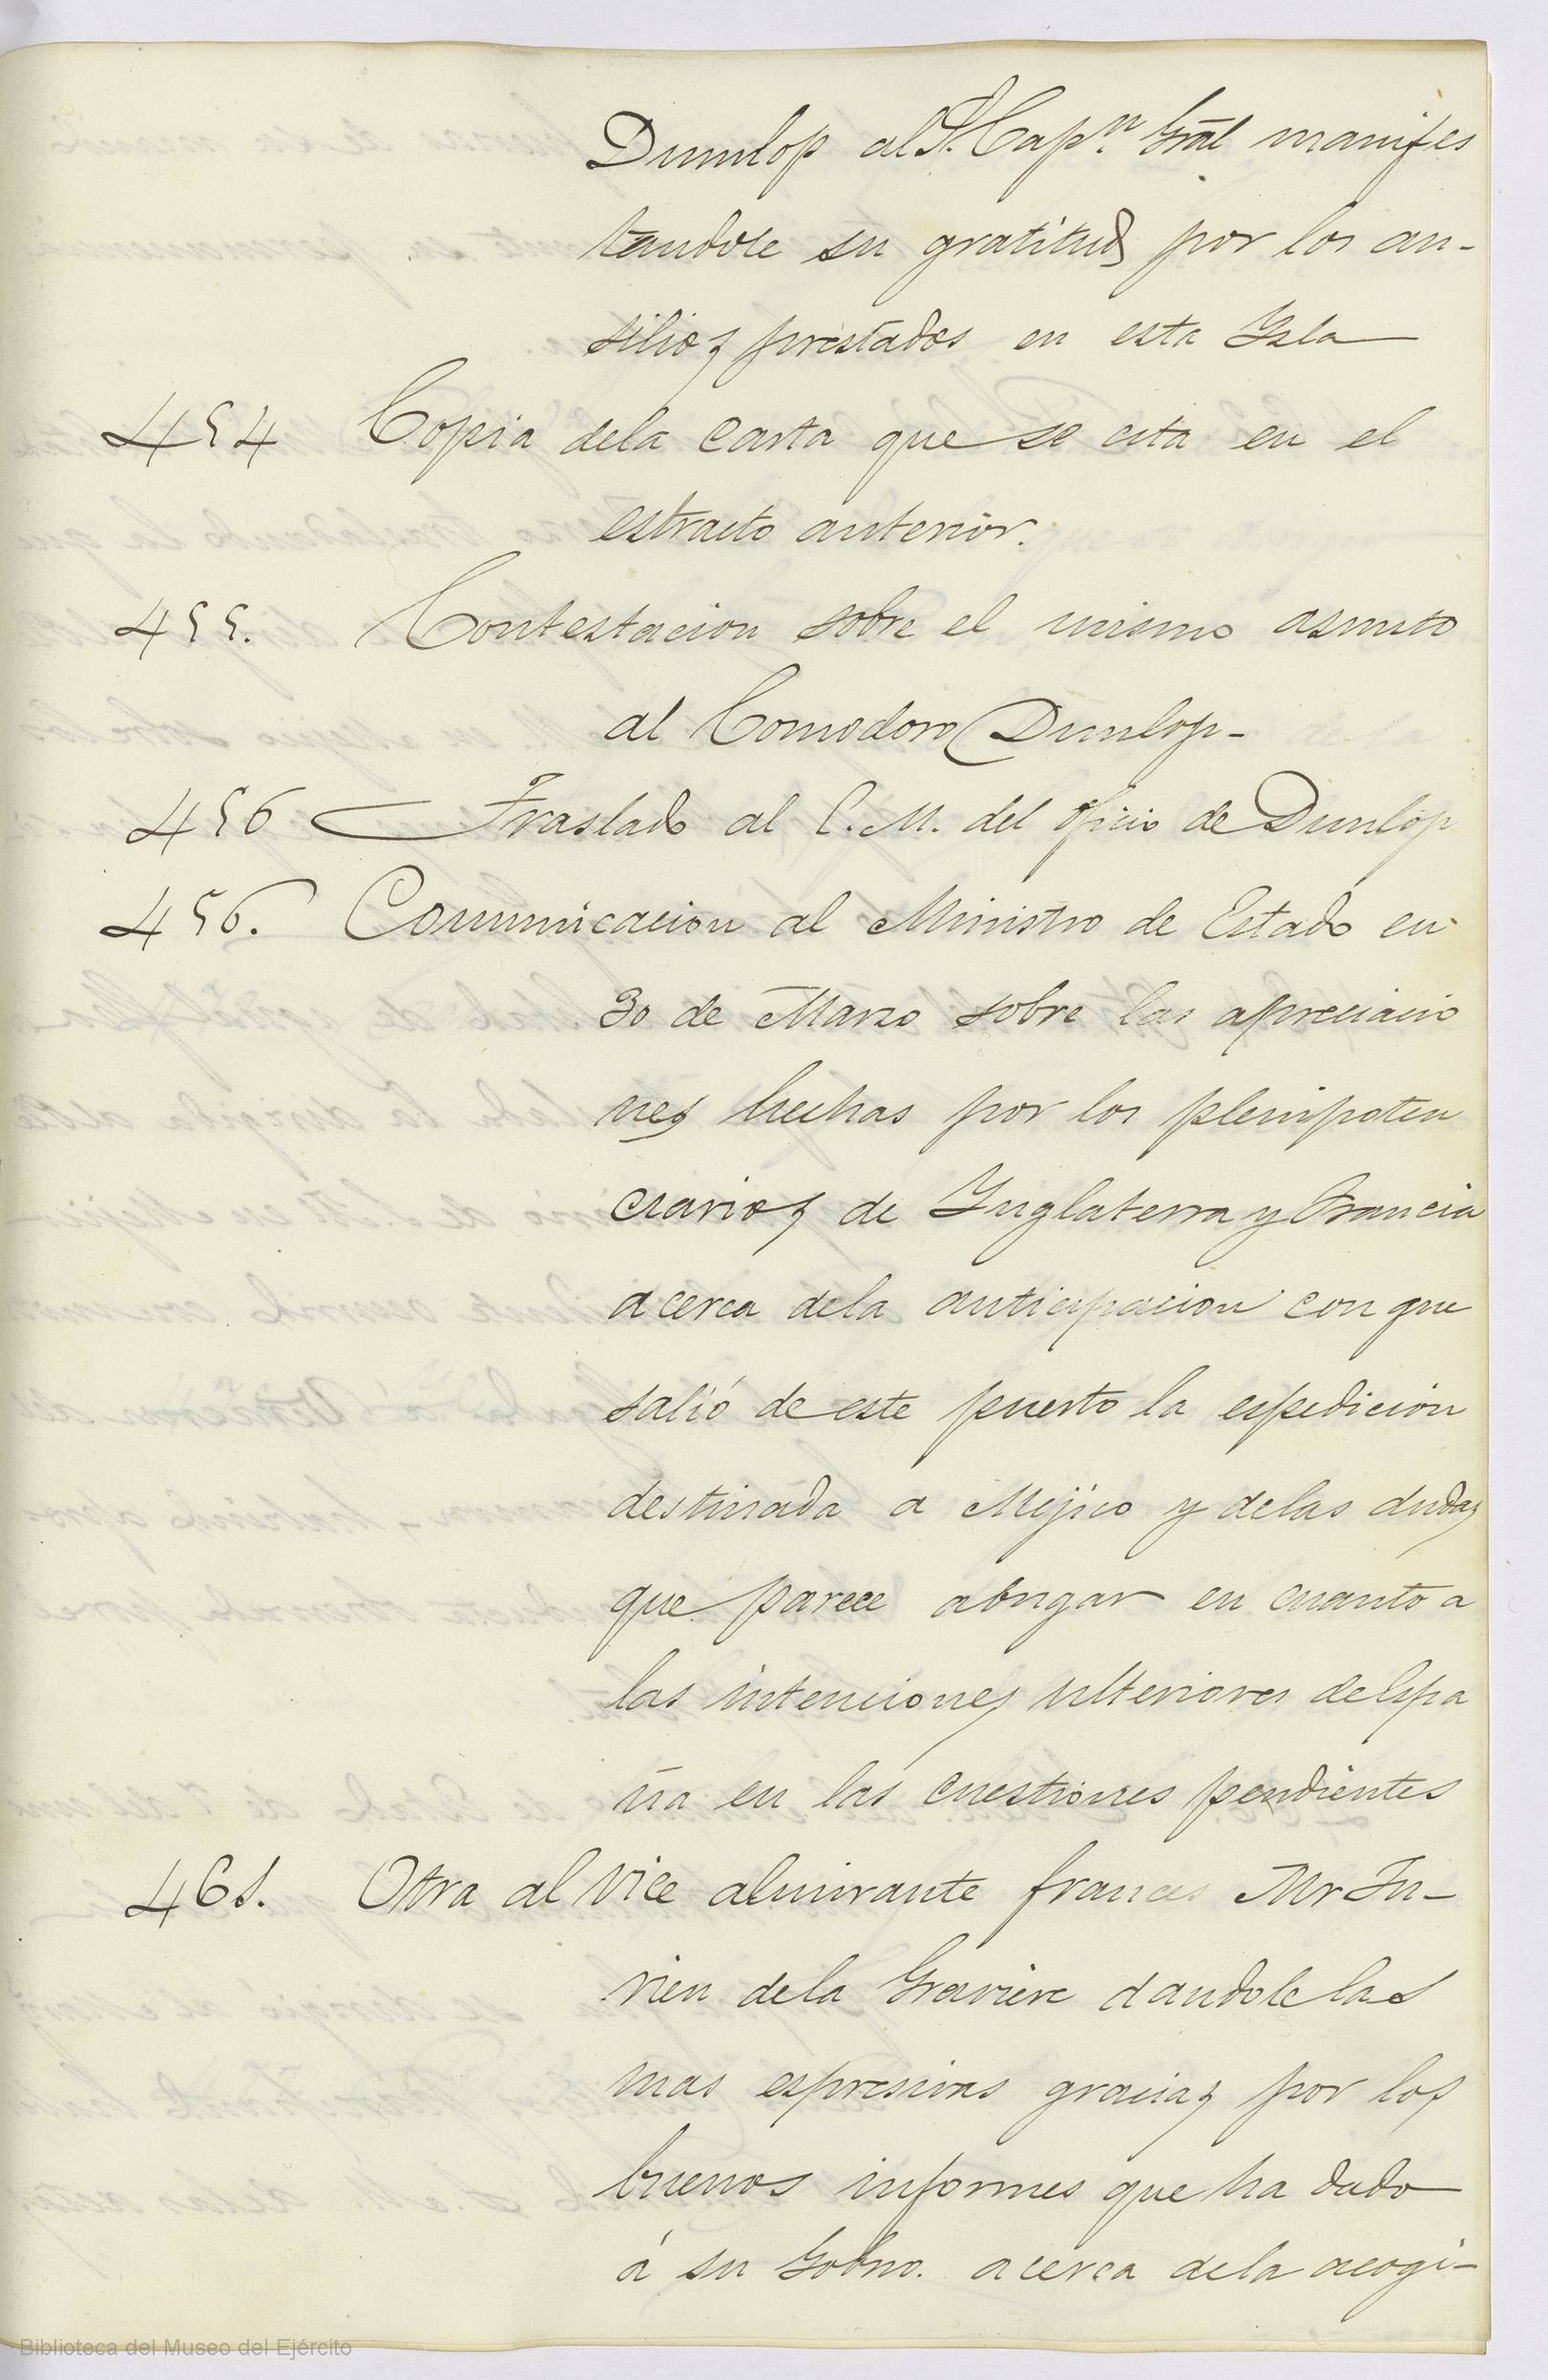 Dunlop al S. Cap.n Gral manifes
tandole su gratitud por los au-
silios prestados en esta Ysla
454 Copia dela carta que se cita en el
estracto anterior.
455. Contestacion sobre el mismo asunto
al Comodoro Dunlop-
456 Traslado al C. M. del oficio de Dunlop
456. Comunicacion al Ministro de Estado en
30 de Marzo sobre las apreciacio
nes hechas por los plenipoten
ciarios de Ynglaterra y Francia
acerca dela anticipacion con que
salió de este puerto la espedicion
destinada a Mejico y delas dudas
que parece abrigar en cuanto a
las intenciones ulteriores de Espa
ña en las cuestiones pendientes
461. Otra al vice almirante frances Mr Ju-
rien dela Graviere dandole las
mas espresivas gracias por los
buenos informes que ha dado
á su Gobno. acerca dela acogi-
Biblioteca del Museo del Ejército